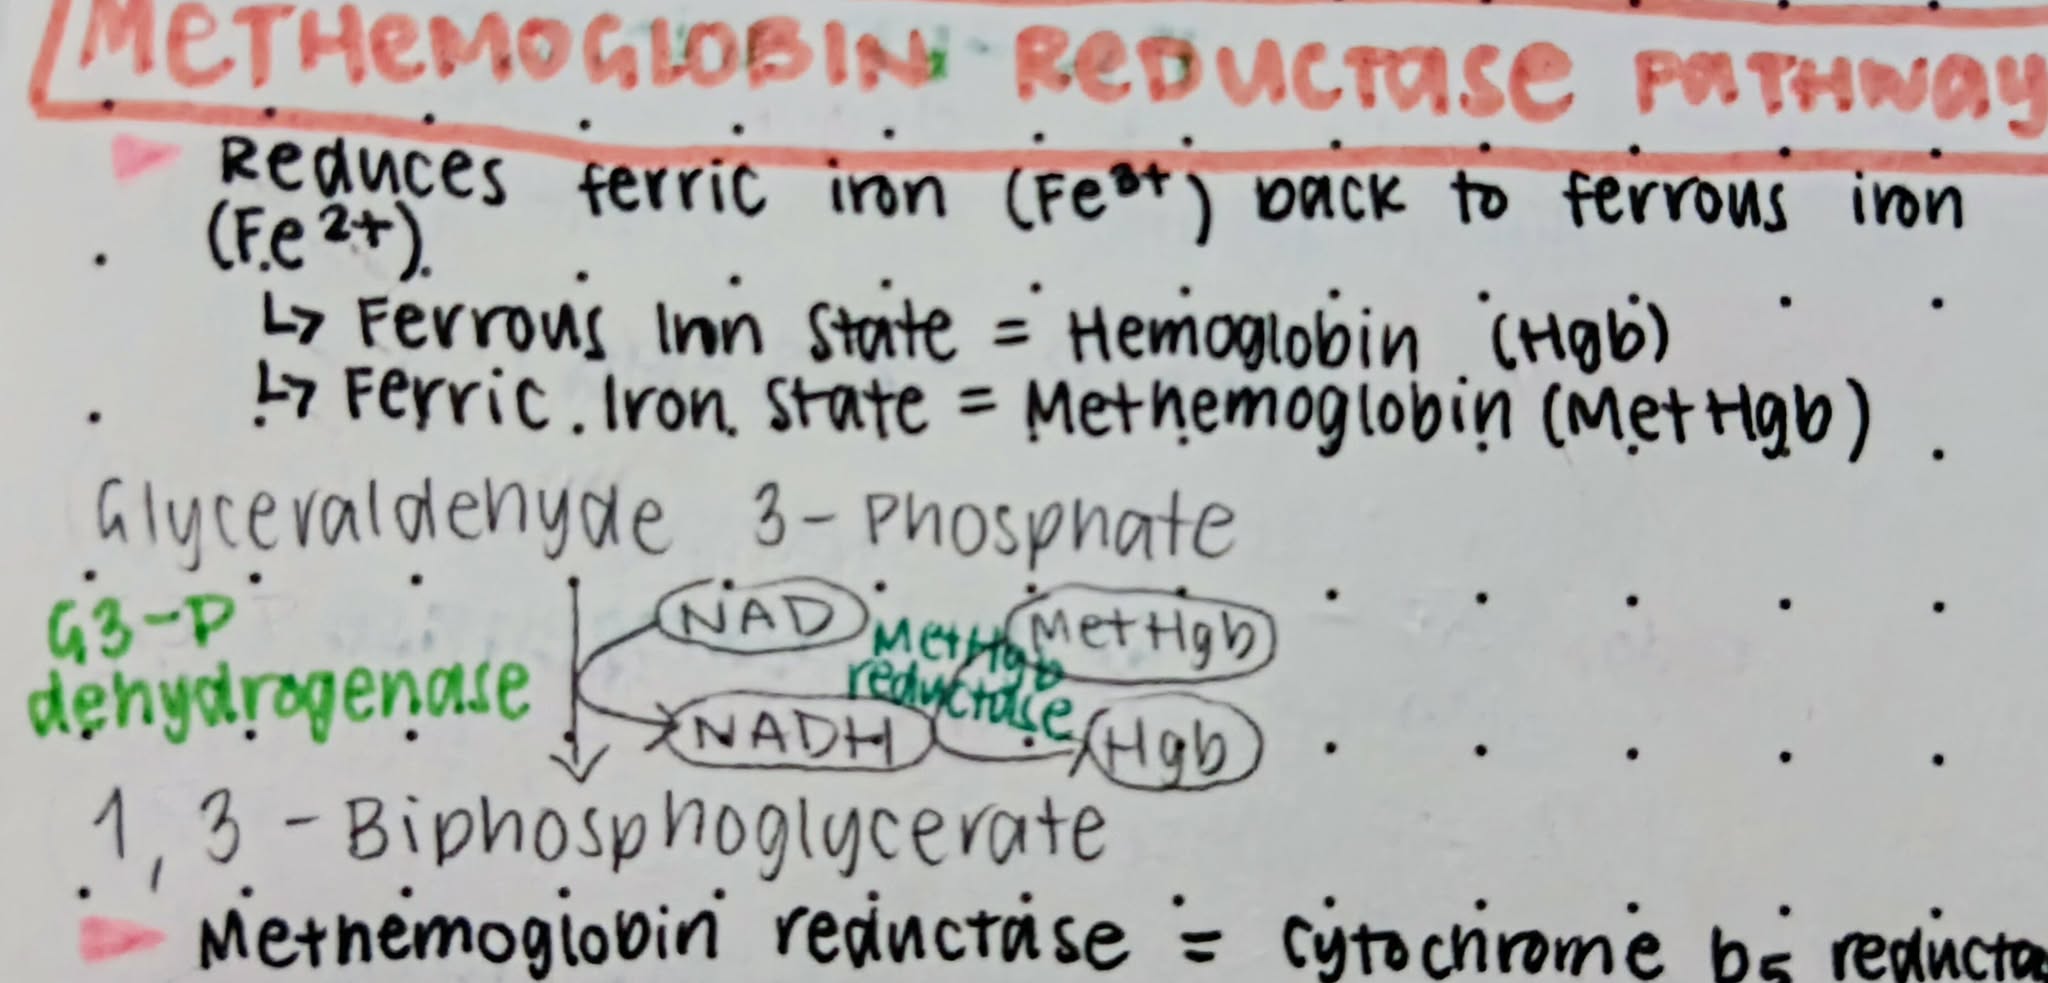 METHEMOGLOBIN REDUCTASE PATHWAY
Reduces ferric iron (Fe³⁺) back to ferrous iron
(Fe²⁺).
↳ Ferrous Iron State = Hemoglobin (Hgb)
↳ Ferric Iron State = Methemoglobin (MetHgb)
Glyceraldehyde 3-Phosphate
G3-P
dehydrogenase
NAD
MetHgb
reductase
MetHgb
NADH
Hgb
1,3-Biphosphoglycerate
Methemoglobin reductase = cytochrome b5 reducta